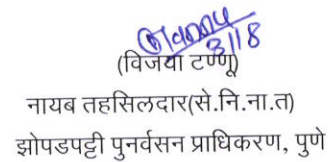 3/8
(विजया टण्णू)
नायब तहसिलदार(से.नि.ना.त)
झोपडपट्टी पुनर्वसन प्राधिकरण, पुणे